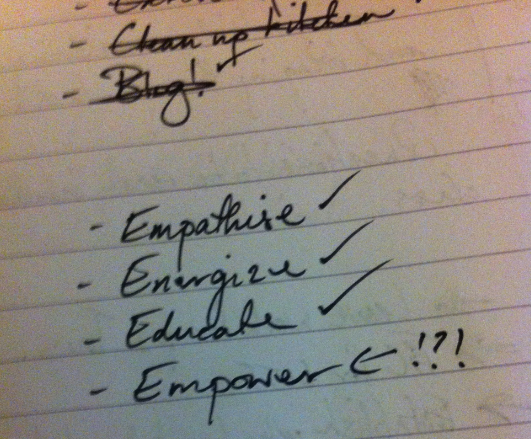 - Clean up kitchen
- Blog! ✓
- Empathise ✓
- Energize ✓
- Educate ✓
- Empower ← !?!